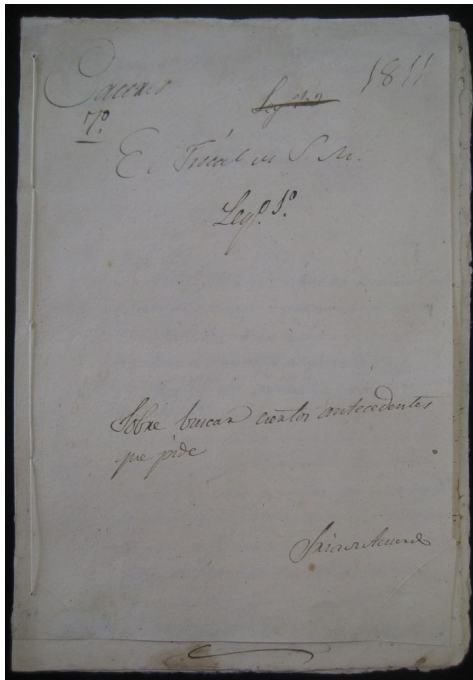 Caceres 1811
7º
El Fiscal de S. M.
Legº. 1º.
Sobre buscar ciertos antecedentes
que pide